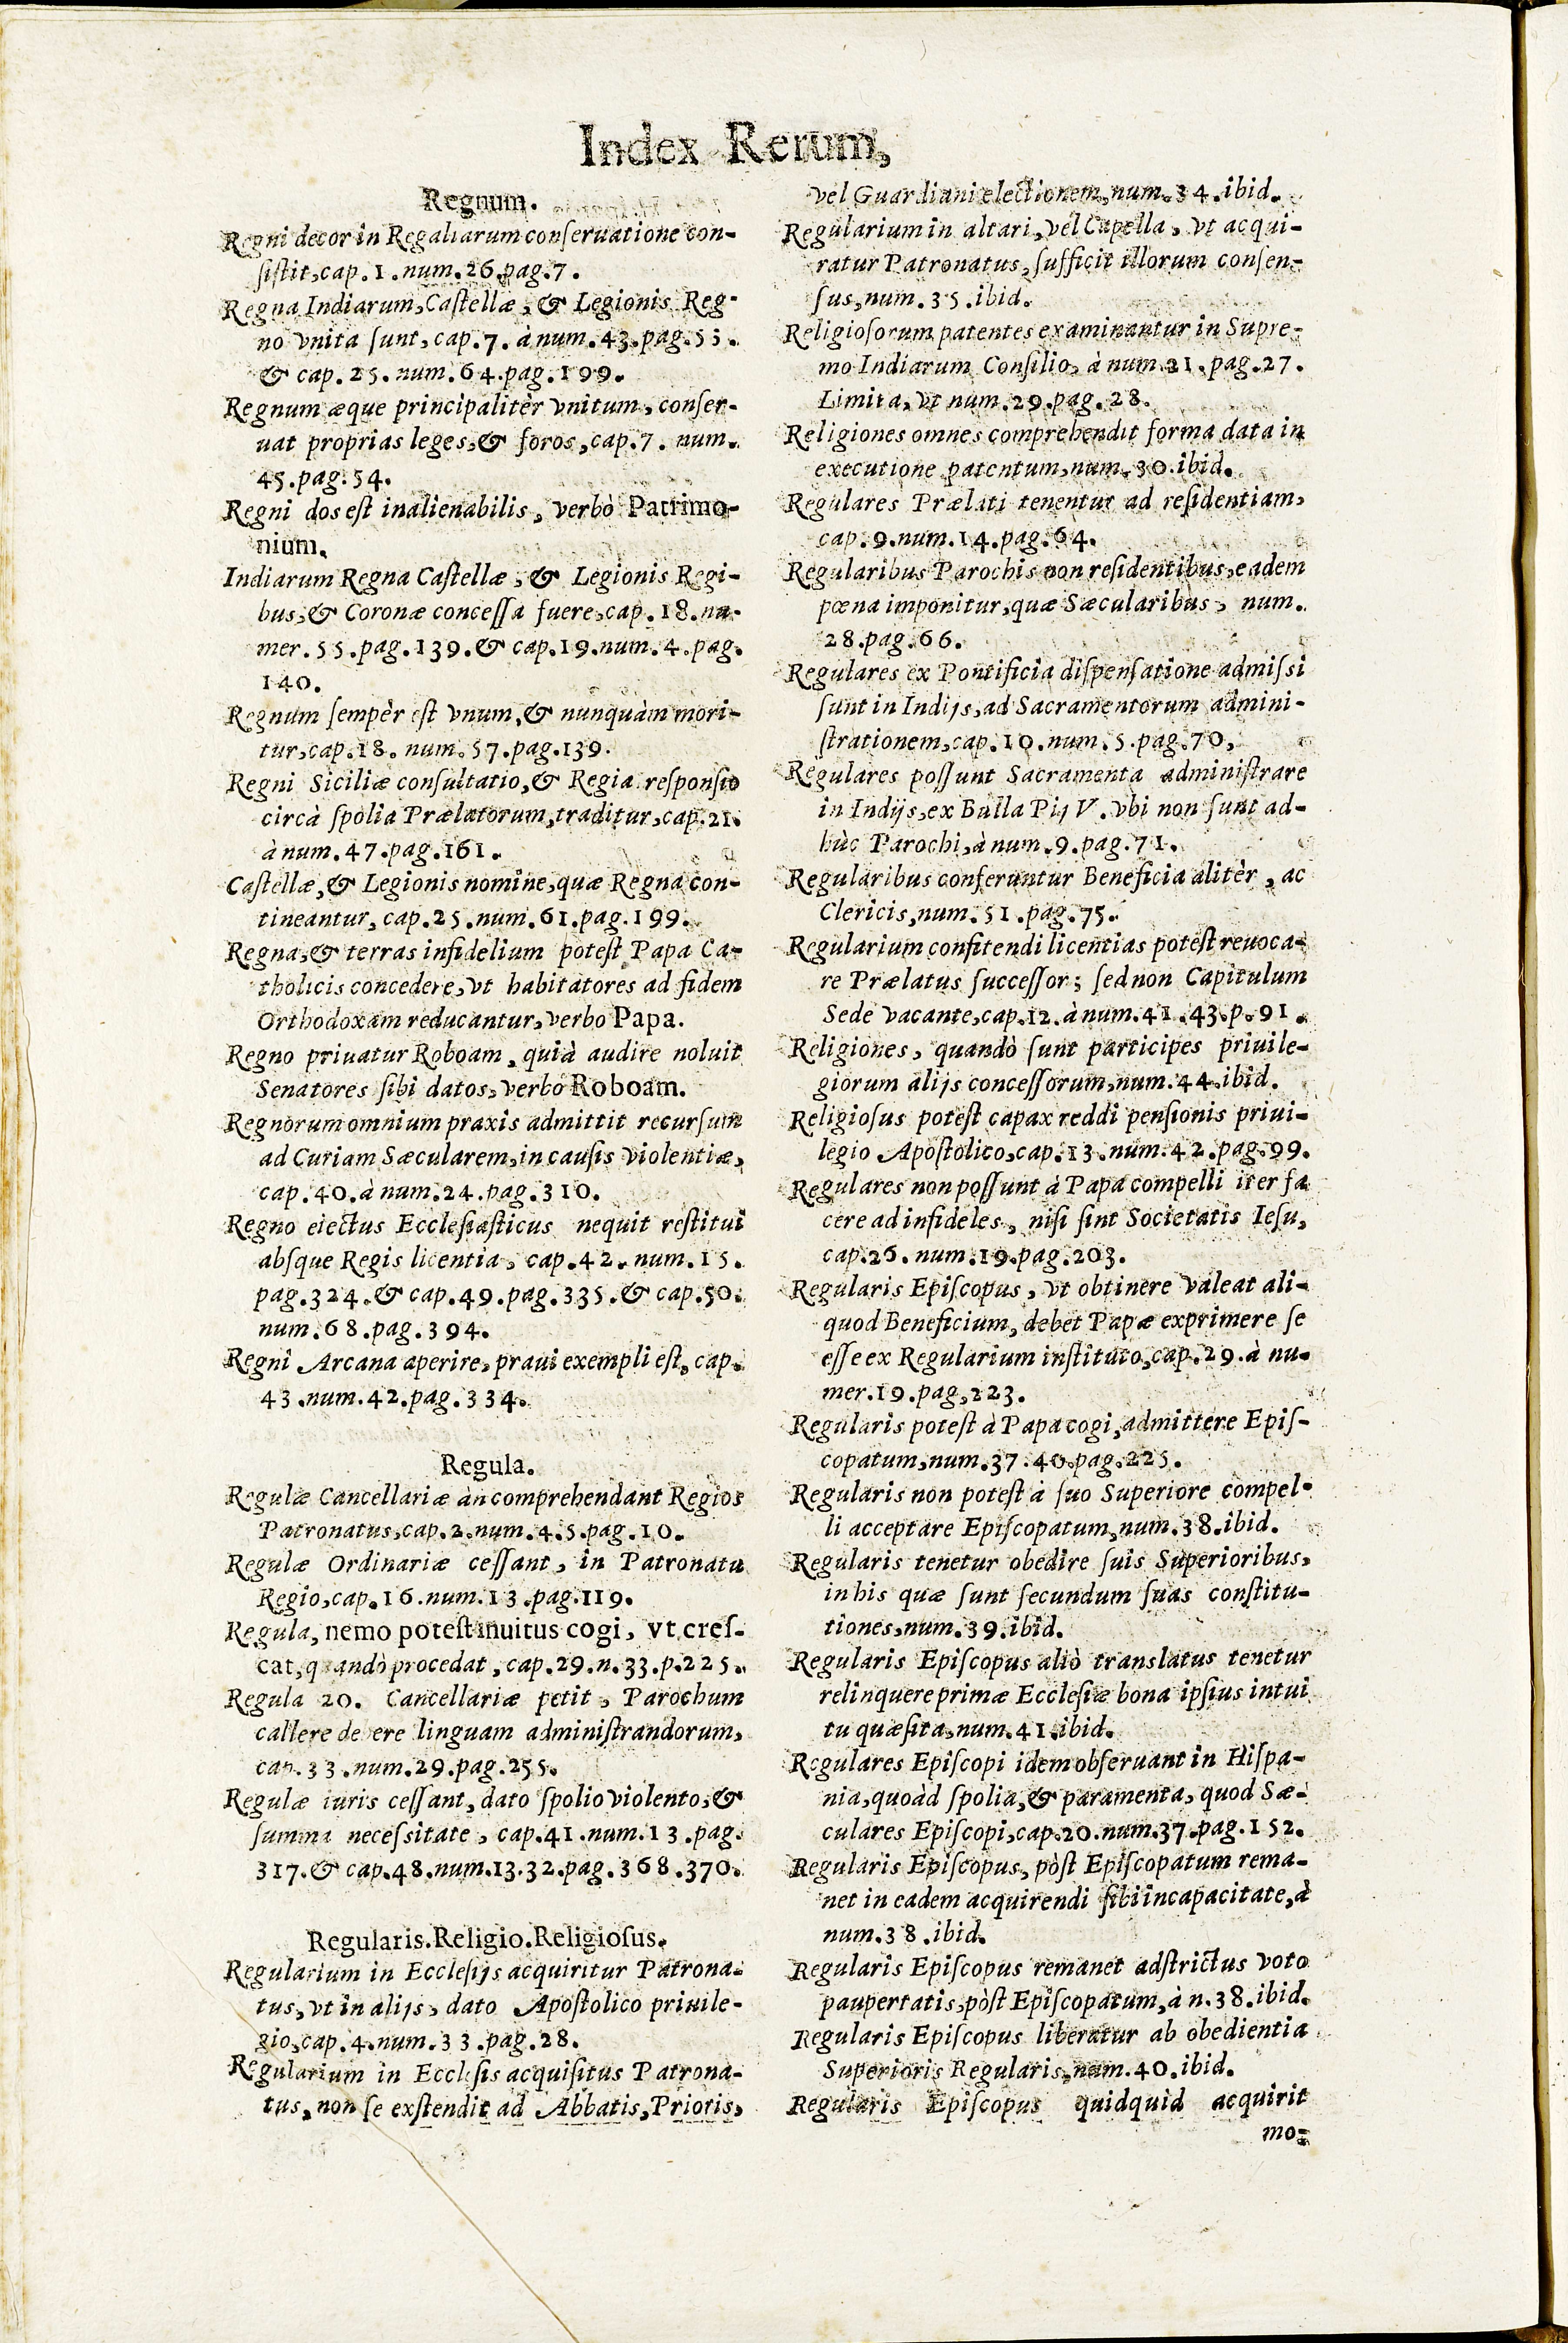 Index Rerum,
Regnum.
Regni decor in Regaliarum conseruatione con-
sistit, cap. 1. num. 26. pag. 7.
Regna Indiarum, Castellæ, & Legionis Reg-
no vnita sunt, cap. 7. à num. 43. pag. 53.
& cap. 25. num. 64. pag. 199.
Regnum æque principalitèr vnitum, conser-
uat proprias leges, & foros, cap. 7. num.
45. pag. 54.
Regni dos est inalienabilis, verbò Patrimo-
nium.
Indiarum Regna Castellæ, & Legionis Regi-
bus, & Coronæ concessa fuere, cap. 18. nu-
mer. 55. pag. 139. & cap. 19. num. 4. pag.
140.
Regnum sempèr est vnum, & nunquàm mori-
tur, cap. 18. num. 57. pag. 139.
Regni Siciliæ consultatio, & Regia responsio
circà spolia Prælatorum, traditur, cap. 21.
à num. 47. pag. 161.
Castellæ, & Legionis nomine, quæ Regna con-
tineantur, cap. 25. num. 61. pag. 199.
Regna, & terras infidelium potest Papa Ca-
tholicis concedere, vt habitatores ad fidem
Orthodoxam reducantur, verbo Papa.
Regno priuatur Roboam, quià audire noluit
Senatores sibi datos, verbo Roboam.
Regnorum omnium praxis admittit recursum
ad Curiam Sæcularem, in causis violentiæ,
cap. 40. à num. 24. pag. 310.
Regno eiectus Ecclesiasticus nequit restitui
absque Regis licentia, cap. 42. num. 15.
pag. 324. & cap. 49. pag. 335. & cap. 50.
num. 68. pag. 394.
Regni Arcana aperire, praui exempli est, cap.
43. num. 42. pag. 334.
Regula.
Regulæ Cancellariæ àn comprehendant Regios
Patronatus, cap. 2. num. 4. 5. pag. 10.
Regulæ Ordinariæ cessant, in Patronatu
Regio, cap. 16. num. 13. pag. 119.
Regula, nemo potest inuitus cogi, vt cres-
cat, quandò procedat, cap. 29. n. 33. p. 225.
Regula 20. Cancellariæ petit, Parochum
callere de ere linguam administrandorum,
cap. 33. num. 29. pag. 255.
Regulæ iuris cessant, dato spolio violento, &
summa necessitate, cap. 41. num. 13. pag.
317. & cap. 48. num. 13. 32. pag. 368. 370.
Regularis. Religio. Religiosus.
Regularium in Ecclesijs acquiritur Patrona-
tus, vt in alijs, dato Apostolico priuile-
gio, cap. 4. num. 33. pag. 28.
Regularium in Ecclesis acquisitus Patrona-
tus, non se exstendit ad Abbatis, Prioris,
vel Guardiani electionem, num. 34. ibid.
Regularium in altari, vel Capella, vt acqui-
ratur Patronatus, sufficit illorum consen-
sus, num. 35. ibid.
Religiosorum patentes examinantur in Supre-
mo Indiarum Consilio, à num. 21. pag. 27.
Limita, vt num. 29. pag. 28.
Religiones omnes comprehendit forma data in
executione patentum, num. 30. ibid.
Regulares Prælati tenentur ad residentiam,
cap. 9. num. 14. pag. 64.
Regularibus Parochis non residentibus, eadem
pœna imponitur, quæ Sæcularibus, num.
28. pag. 66.
Regulares ex Pontificia dispensatione admissi
sunt in Indijs, ad Sacramentorum admini-
strationem, cap. 10. num. 5. pag. 70,
Regulares possunt Sacramenta administrare
in Indijs, ex Bulla Pij V. vbi non sunt ad-
hùc Parochi, à num. 9. pag. 71.
Regularibus conferuntur Beneficia alitèr, ac
Clericis, num. 51. pag. 75.
Regularium confitendi licentias potest reuoca-
re Prælatus successor; sed non Capitulum
Sede vacante, cap. 12. à num. 41. 43. p. 91.
Religiones, quandò sunt participes priuile-
giorum alijs concessorum, num. 44. ibid.
Religiosus potest capax reddi pensionis priui-
legio Apostolico, cap. 13. num. 42. pag. 99.
Regulares non possunt à Papa compelli iter fa
cere ad infideles, nisi sint Societatis Iesu,
cap. 26. num. 19. pag. 203.
Regularis Episcopus, vt obtinere valeat ali-
quod Beneficium, debet Papæ exprimere se
esse ex Regularium instituto, cap. 29. à nu-
mer. 19. pag. 223.
Regularis potest à Papa cogi, admittere Epis-
copatum, num. 37. 40. pag. 225.
Regularis non potest à suo Superiore compel-
li acceptare Episcopatum, num. 38. ibid.
Regularis tenetur obedire suis Superioribus,
in his quæ sunt secundum suas constitu-
tiones, num. 39. ibid.
Regularis Episcopus aliò translatus tenetur
relinquere primæ Ecclesiæ bona ipsius intui
tu quæsita, num. 41. ibid.
Regulares Episcopi idem obseruant in Hispa-
nia, quoàd spolia, & paramenta, quod Sæ-
culares Episcopi, cap. 20. num. 37. pag. 152.
Regularis Episcopus, pòst Episcopatum rema-
net in eadem acquirendi sibi incapacitate, à
num. 38. ibid.
Regularis Episcopus remanet adstrictus voto
paupertatis, pòst Episcopatum, à n. 38. ibid.
Regularis Episcopus liberatur ab obedientia
Superioris Regularis, num. 40. ibid.
Regularis Episcopus quidquid acquirit
mo-